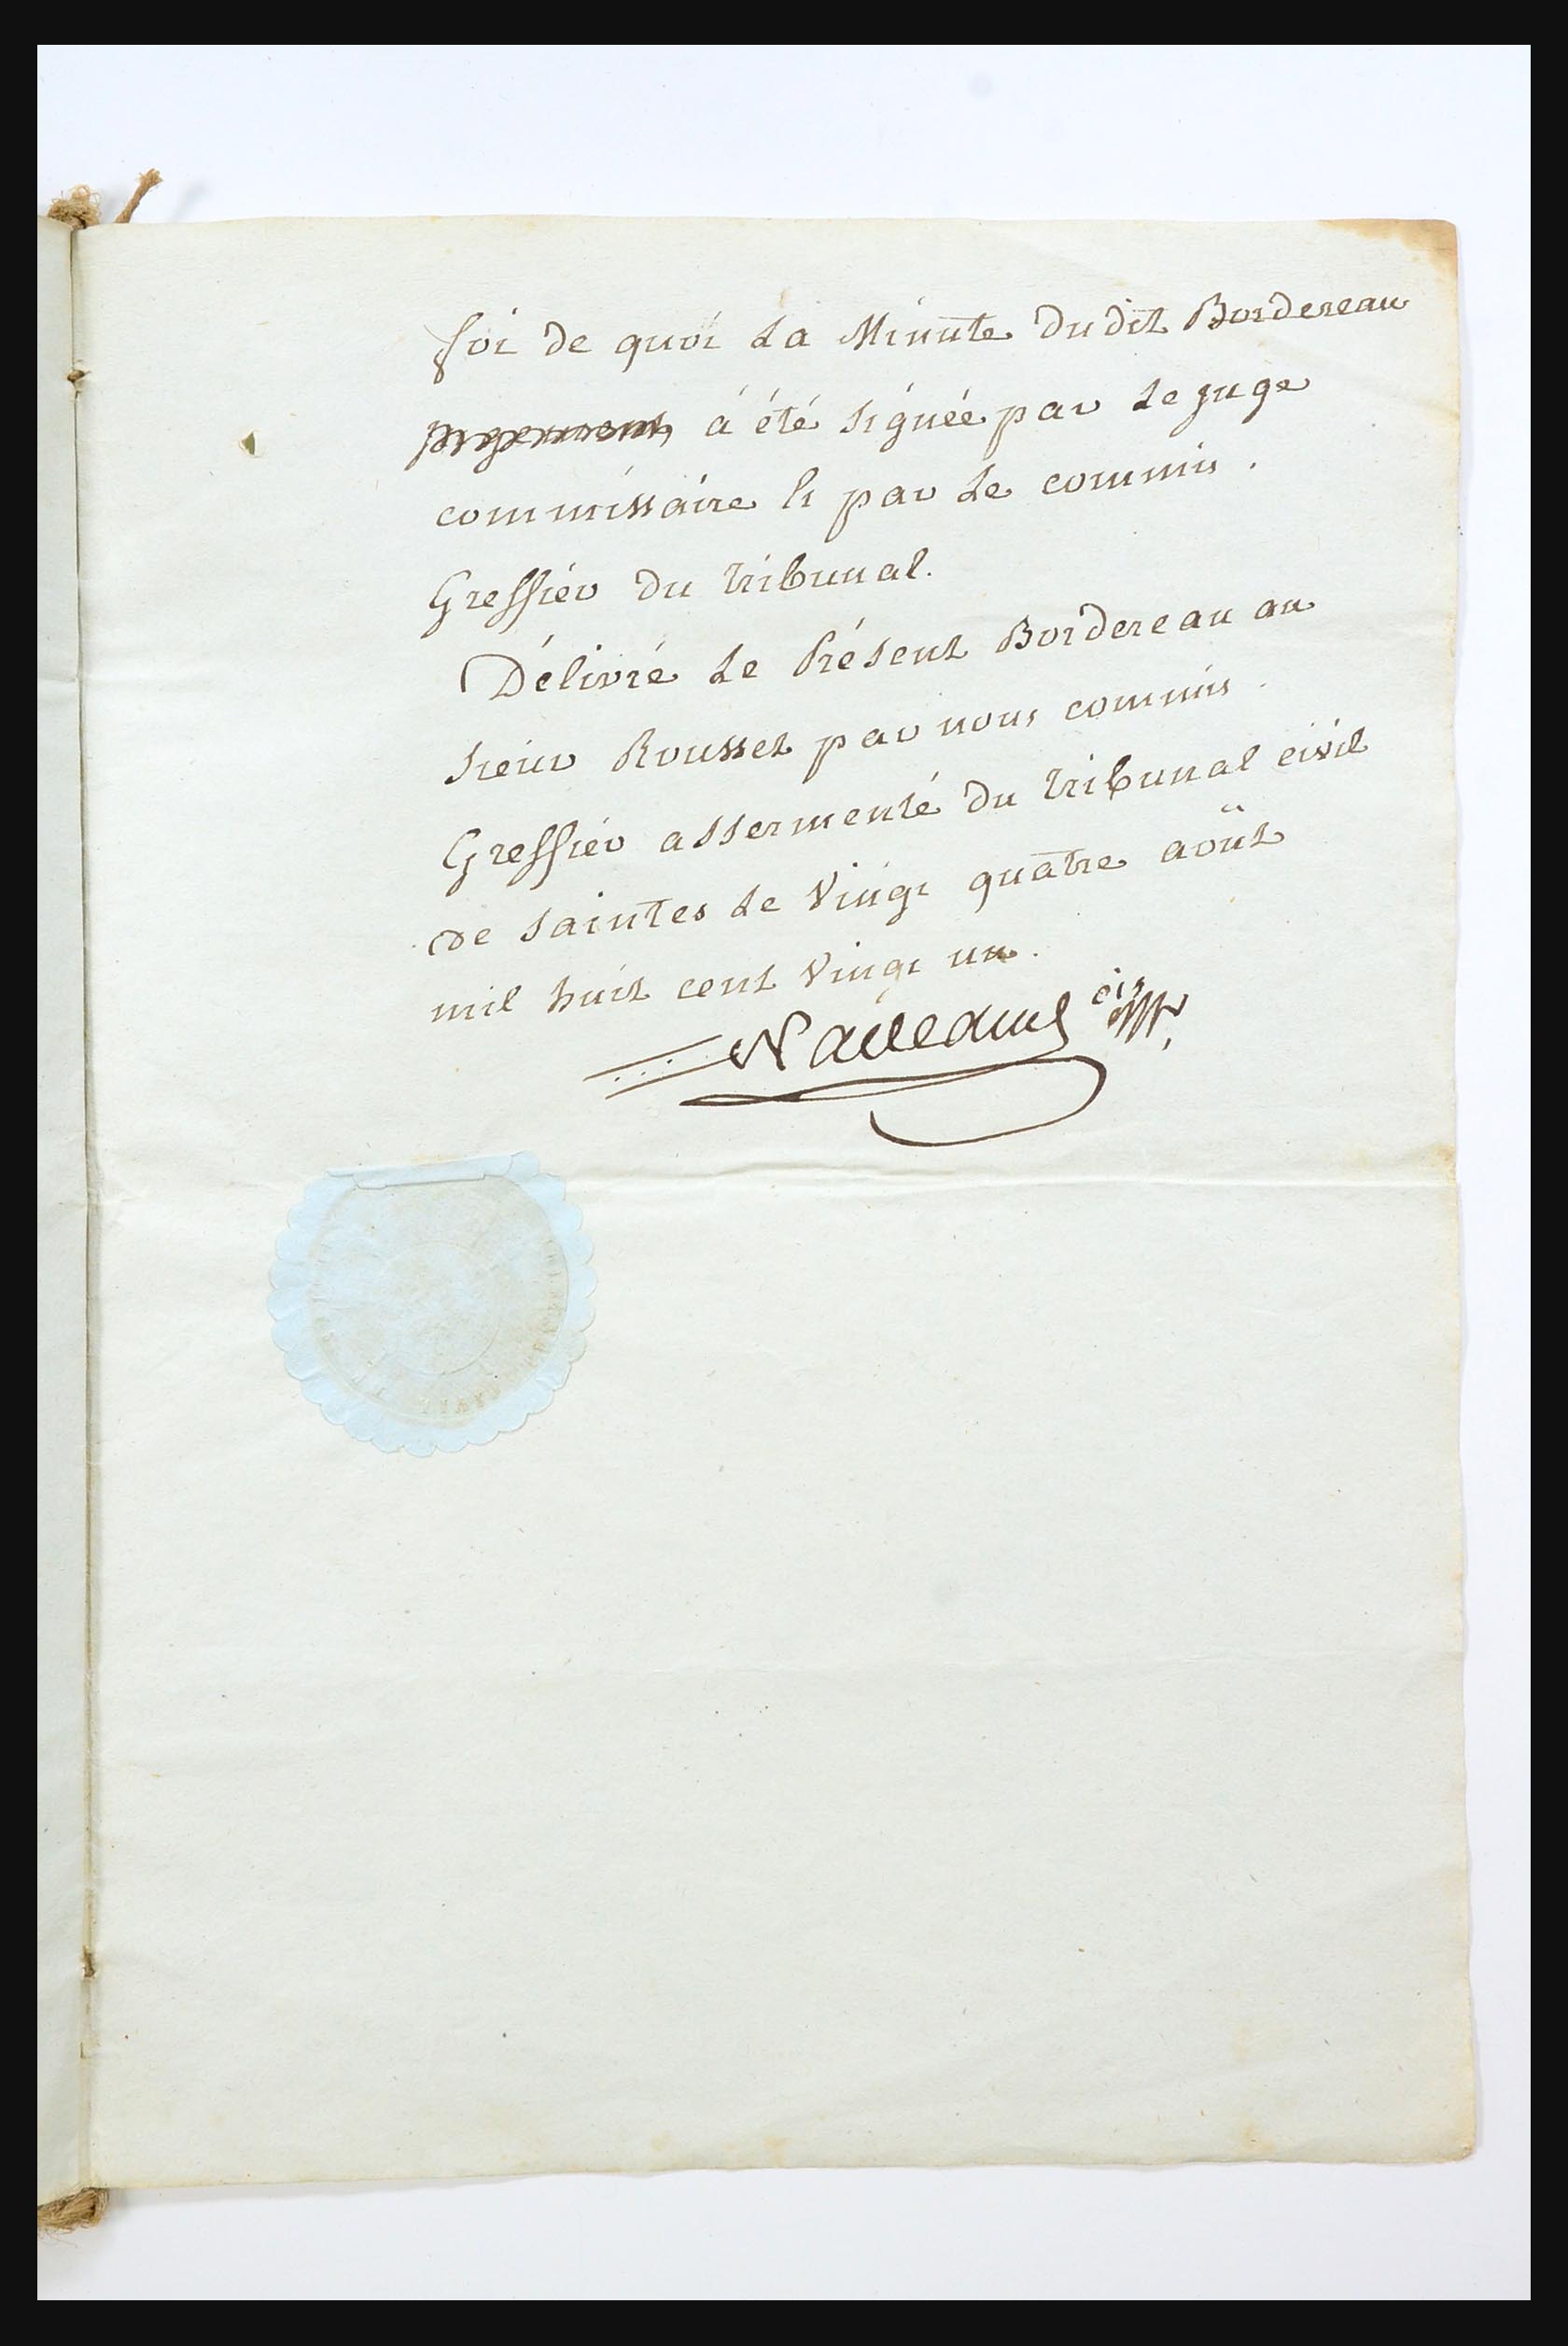 foi de quoi La Minute du dit Bordereau
à été signée par Le juge
commissaire & par Le commis.
Greffier du tribunal.
Délivré Le Présent Bordereau au
sieur Rousset par nous commis.
Greffier assermenté du tribunal civil
de saintes Le Vingt quatre août
mil huit cent Vingt un.